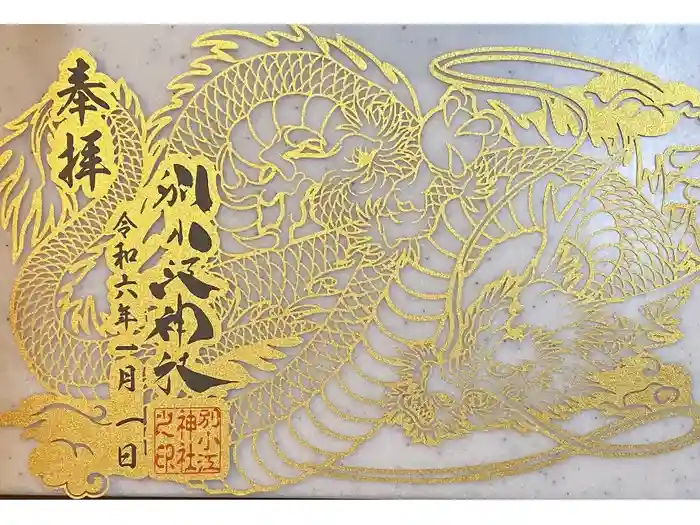 奉拝
別小江神社
令和六年一月一日
別小江
神社
之印